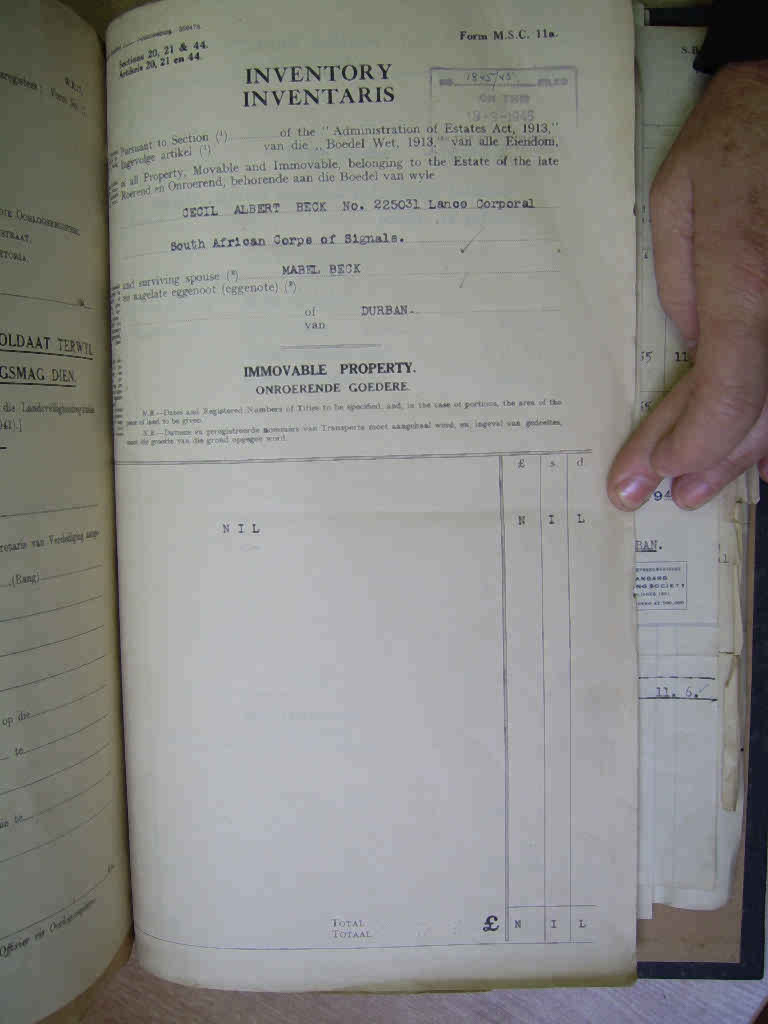 Form M.S.C. 11a.
Sections 20, 21 & 44.
Artikels 20, 21 en 44.
INVENTORY
INVENTARIS
No. 1845/45 FILED
ON THIS
Pursuant to Section (¹) of the "Administration of Estates Act, 1913,"
Ingevolge artikel (¹) van die „Boedel Wet, 1913," van alle Eiendom,
all Property, Movable and Immovable, belonging to the Estate of the late
Roerend en Onroerend, behorende aan die Boedel van wyle
CECIL ALBERT BECK No. 225031 Lance Corporal
South African Corps of Signals.
and surviving spouse (²) MABEL BECK
en nagelate eggenoot (eggenote) (²)
of DURBAN.
van
IMMOVABLE PROPERTY.
ONROERENDE GOEDERE.
N.B.—Dates and Registered Numbers of Titles to be specified, and, in the case of portions, the area of the
piece of land to be given.
N.B.—Datums en geregistreerde nommers van Transporte moet aangehaal word, en, ingeval van gedeeltes,
moet die grootte van die grond opgegee word.
£ s. d.
NIL N I L
TOTAL
TOTAAL £ N I L
STRAAT,
OLDAAT TERWYL
GSMAG DIEN.
(Rang)
op die
te
BAN.
11. 6.